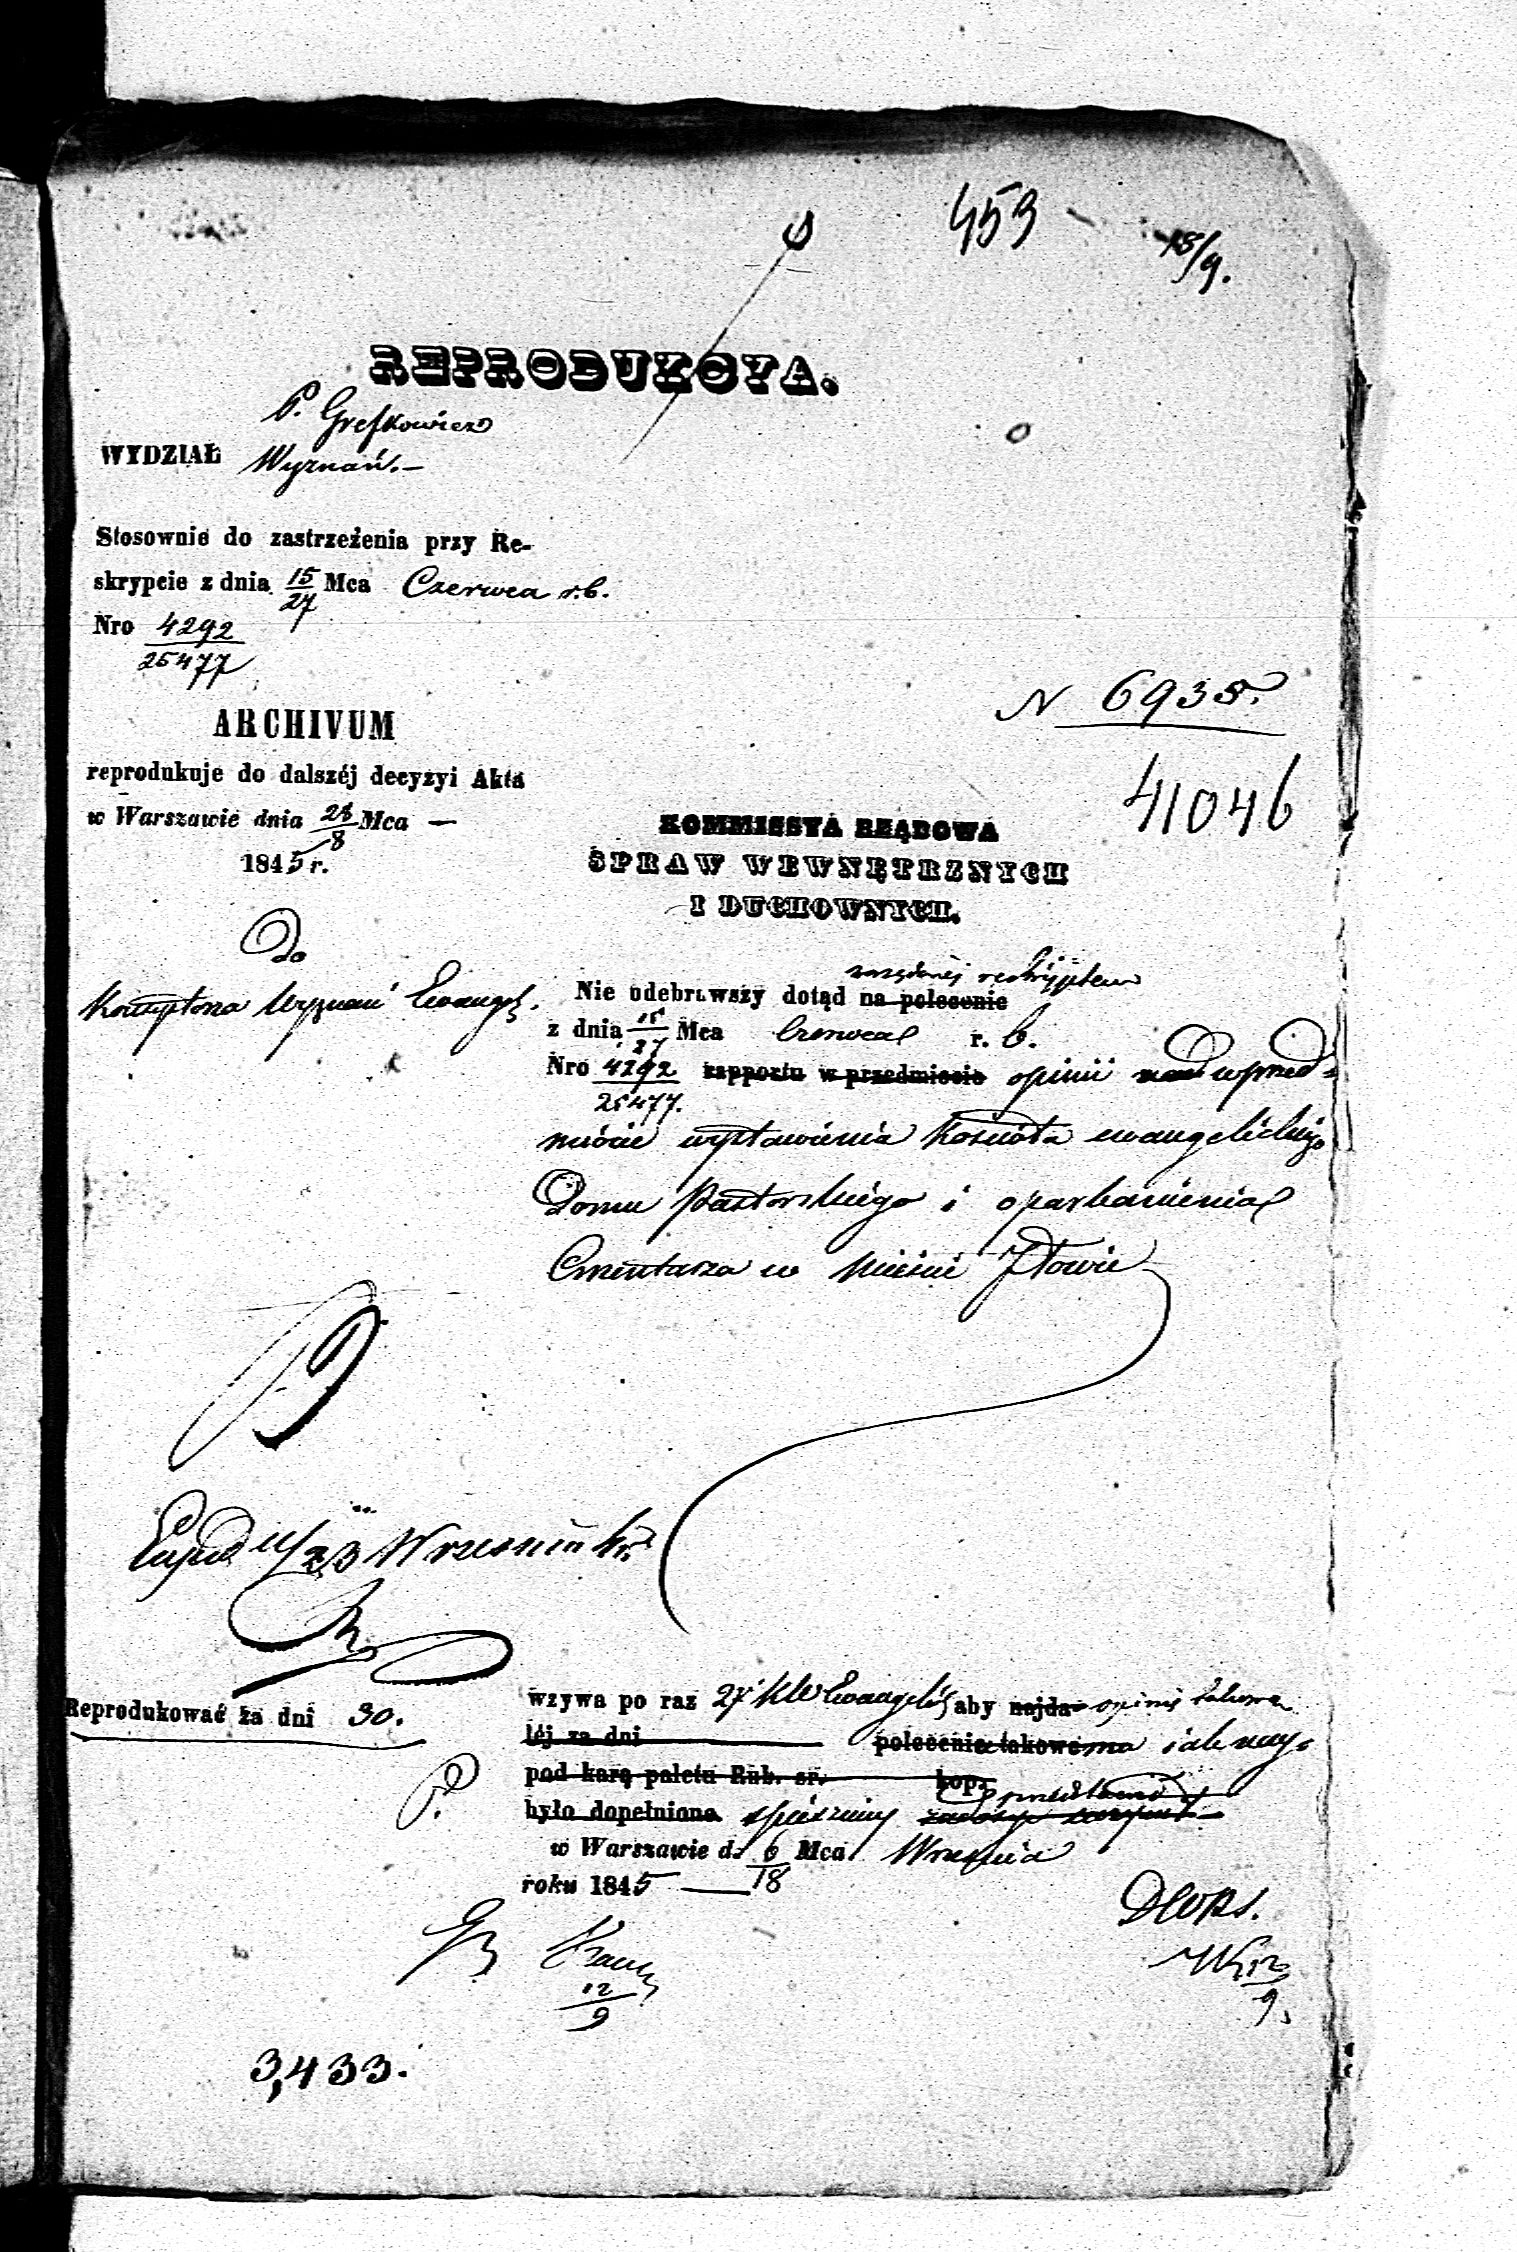 453
18/9.
REPRODUKCYA.
P. Grefkowicz
WYDZIAŁ Wyznań.—
Stosownie do zastrzeżenia przy Re-
skrypcie z dnia 15/27 Mca Czerwca r.b.
Nro 4292/25477
N 6935.
41046
ARCHIVUM
reprodukuje do dalszéj decyzyi Akta
w Warszawie dnia 28/8 Mca —
1845 r.
KOMMISSYA RZĄDOWA
SPRAW WEWNĘTRZNYCH
I DUCHOWNYCH.
Do
Konsystorza Wyznań Ewangel.
żądanéj reskryptem
Nie odebrawszy dotąd na polecenie
z dnia 15/27 Mca Czerwca r. b.
Nro 4292/25477. rapportu w przedmiocie opinii wprzed-
miócie wystawienia Kościoła ewangelickiego
Domu Pastorskiego i oparkanienia
Cmentarza w Mieście Iłowie
Exped 11/23 Września
Reprodukować za dni 30.
wzywa po raz 2gi KW Ewangel aby najda- opinię takową
léj za dni polecenie takowe jak nay-
pod karą paletu Rub. sr. kop.
przedstawił
było dopełniono spieszniey
w Warszawie d. 6/18 Mca Września
roku 1845
DWRS.
12/9
12/9.
3,433.